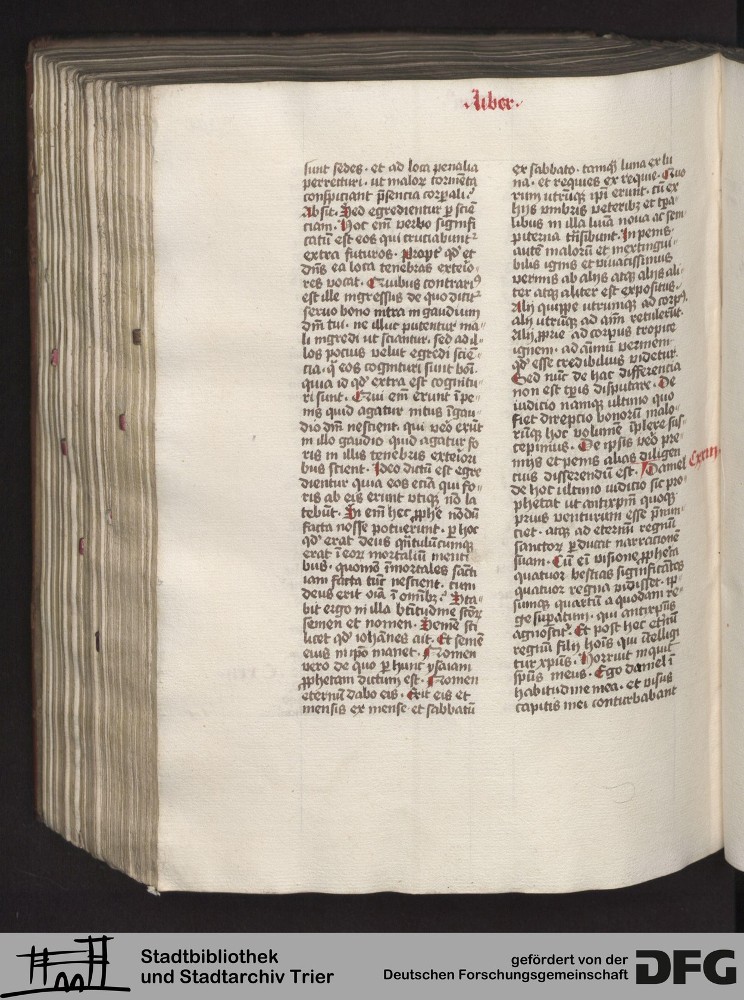 Liber
sunt sedes. et ad loca penalia
perrecturi. ut malor tormēta
conspiciant p̄sencia corꝑali.
Absit. Sed egredientur ꝑ sciē
ciam. Hoc em̄ verbo signifi
catū est eos qui cruciabunt᷑
extra futuros. Propt᷑ qd̛ et
dn̄s ea loca tenebras exterio
res vocat. Quibus contrariꝰ
est ille ingressus de quo dicit᷑
seruo bono intra in gaudium
dn̄i tui. ne illuc putentur ma
li ingredi ut sciantur. sed ad il
los pocius velut egredi sciē
cia. q̄ eos cognituri sunt boni.
quia id qd̛ extra est cognitu
ri sunt. Qui em̄ erunt ī pe
nis quid agatur intus ī gau
dio dn̄i nescient. qui vēo erūt
in illo gaudio quid agatur fo
ris in illis tenebris exteriori
bus scient. Ideo dictū est egre
dientur quia eos eciā qui fo
ris ab eis erunt vtiqꝫ nō la
tebūt. Si em̄ hec ꝓphe nōdū
facta nosse potuerunt. ꝑ hoc
qd̛ erat deus qn̄tulūcumqꝫ
erat ī eoꝝ mortaliū menti
bus. quomō īmortales sācti
iam facta tūc nescient. cum
deus erit oīa ī omībꝫ. Sta
bit ergo in illa btītudīne sctōꝝ
semen et nomen. Semē sci
licet qd̛ iohānes ait. Et semē
eius in ip̄o manet. Nomen
vero de quo ꝑ hunc ysaiam
ꝓphetam dictum est. Nomen
eternū dabo eis. Erit eis et
mensis ex mense et sabbatū
ex sabbato. tamqꝫ luna ex lu
na. et requies ex requie. Quo
rum utrūqꝫ ip̄i erunt. cū ex
hijs vmbris veteribꝫ et tꝑa
libus in illa lūīa noua ac sem
piterna trāsibunt. In penis
autē malorū et inextingui
bilis ignis et viuacissimus
vermis ab alijs atqꝫ alijs ali
ter atqꝫ aliter est expositus.
Alij quippe utrumqꝫ ad corpꝰ.
alij utrūqꝫ ad aīm̄ retulerūt.
Alij ꝓprie ad corpus tropice
ignem. ad animū vermem.
qd̛ esse credibilius videtur.
Sed nūc de hac differencia
non est tꝑis disputare. De
iudicio namqꝫ ultimo quo
fiet direpcio bonorū malo
rūqꝫ hoc volumē īplere sus
cepimus. De ip̄sis vēo pre
mijs et penis alias diligen
cius disserendū est. Daniel
de hoc ultimo iudicio sic pro
phetat ut antixp̄m quoqꝫ
prius venturum esse p̄nun
ciet. atqꝫ ad eternū regnū
sanctoꝝ ꝑducit narracionē
suam. Cū em̄ visione ꝓpheta
quatuor bestias significātes
quatuor regna vidisset. ip̄
sumqꝫ quartū a quodam re
ge suꝑatum. qui antixp̄us
agnoscit᷑. Et post hec et̄nū
regnū filij hoīs qui ītelligi
tur xp̄us. Horruit inquit
sp̄us meus. Ego daniel ī
habitudine mea. et visus
capitis mei conturbabant
Stadtbibliothek
und Stadtarchiv Trier
gefördert von der
Deutschen Forschungsgemeinschaft
DFG